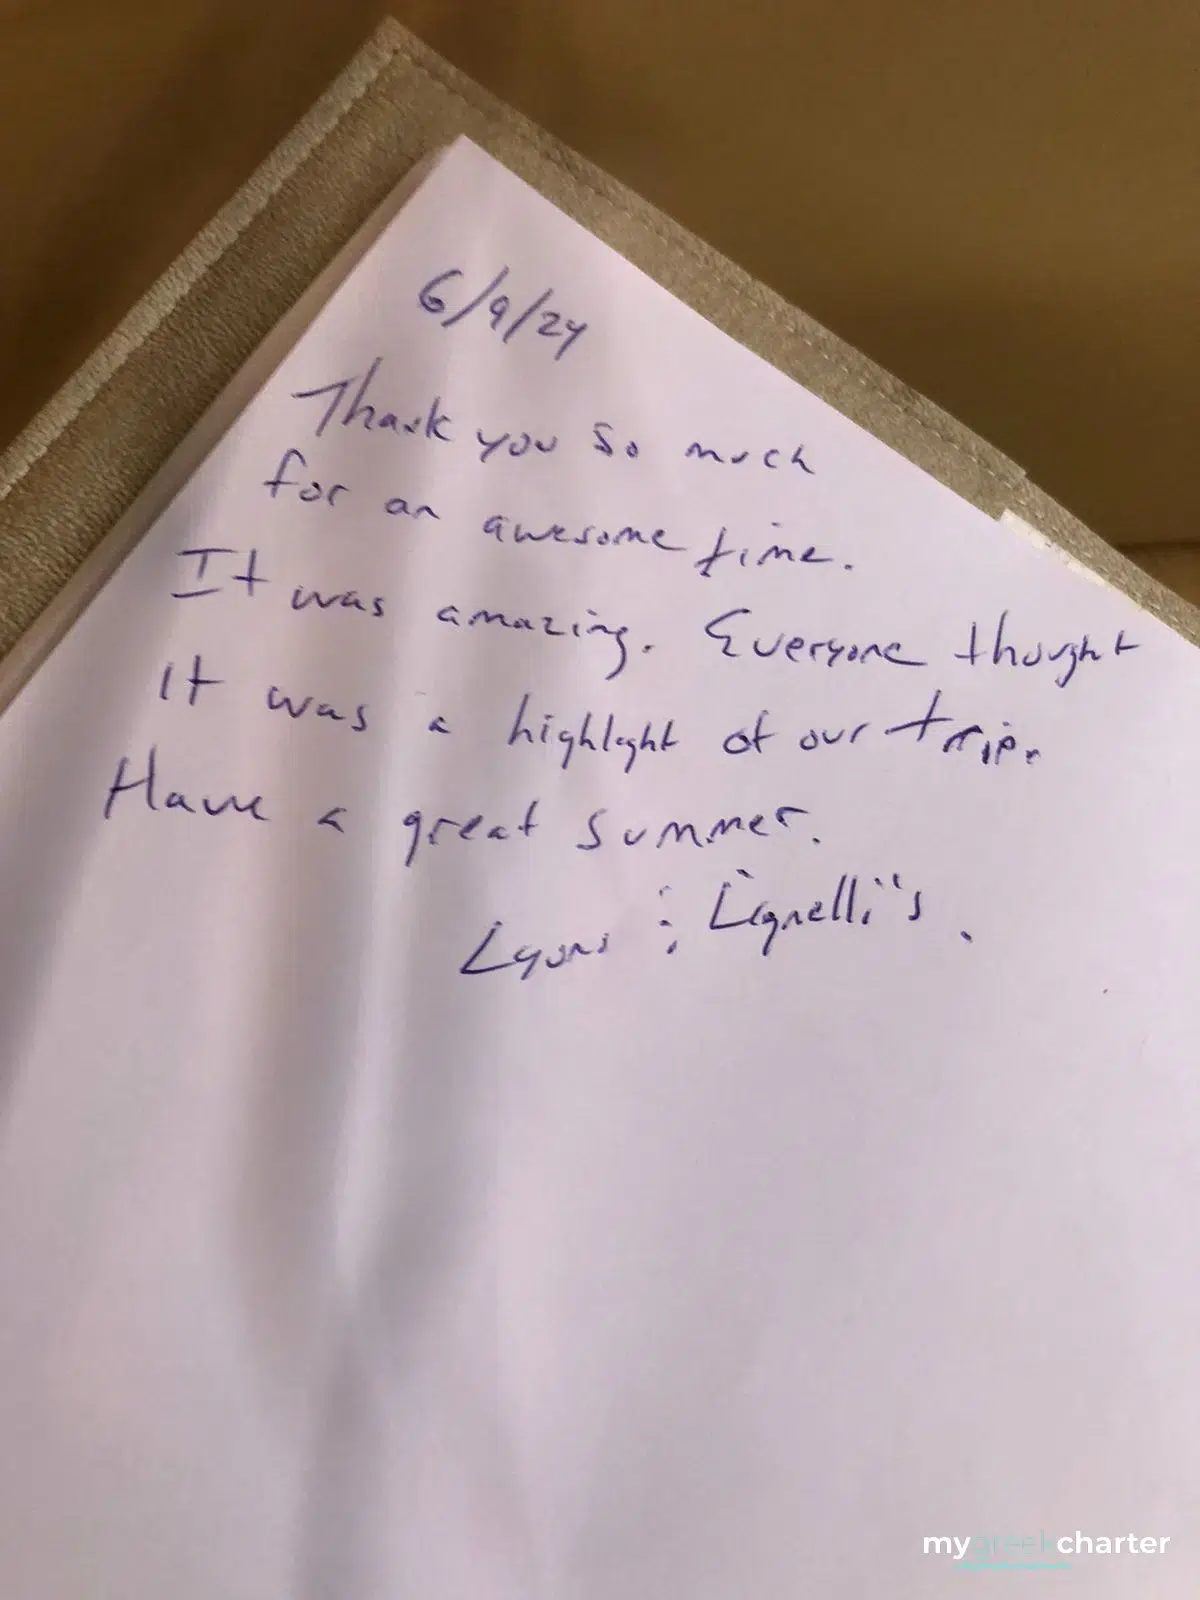 6/9/24
Thank you so much
for an awesome time.
It was amazing. Everyone thought
it was a highlight of our trip.
Have a great summer.
Lyons & Lignelli's.
mygreekcharter